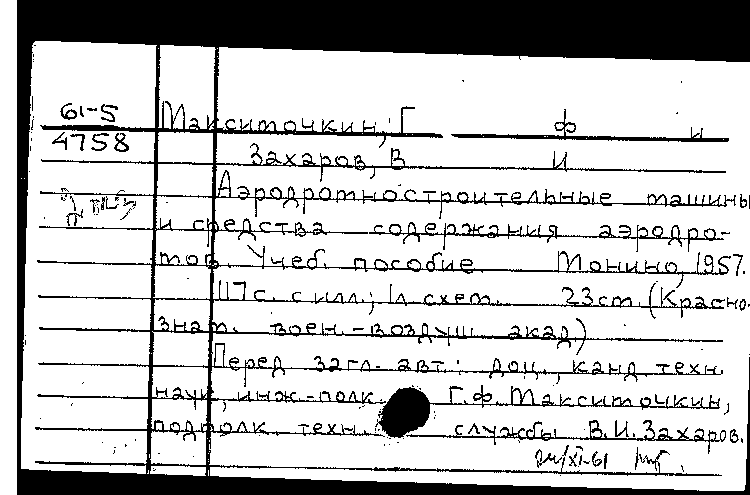 61-5 Максимочкин, Г Ф и
4758
Захаров, В И
Аэродромностроительные машины
и средства содержания аэродро-
мов. Учеб. пособие. Монино, 1957.
117 с. с илл.; 1 л схем. 23 см. (Красно-
знам. воен.-воздуш акад)
Перед загл. авт.: доц., канд. техн.
наук, инж-полк. Г.Ф. Максимочкин,
подполк. техн. службы В.И. Захаров.
24/XI-61